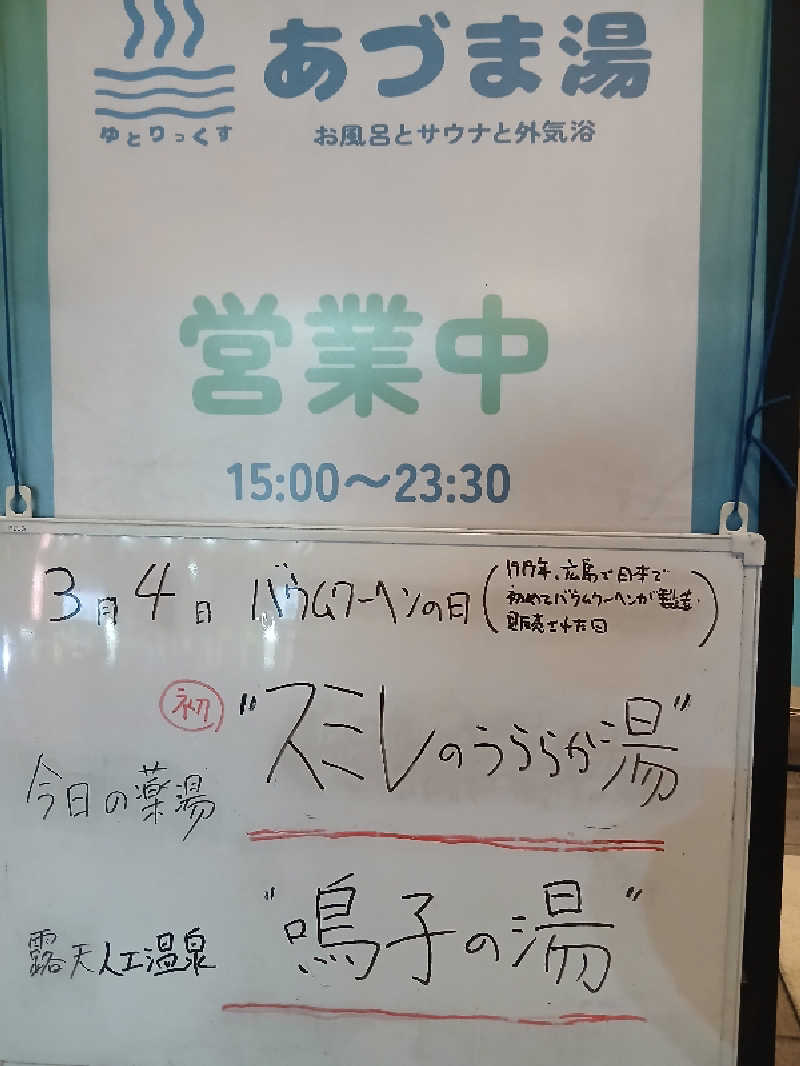 あづま湯
ゆとりっくす
お風呂とサウナと外気浴
営業中
15:00〜23:30
3月4日 バウムクーヘンの日
1919年、広島で日本で
初めてバウムクーヘンが製造・
販売された日
初
"スミレのうららか湯"
今日の薬湯
"鳴子の湯"
露天人工温泉